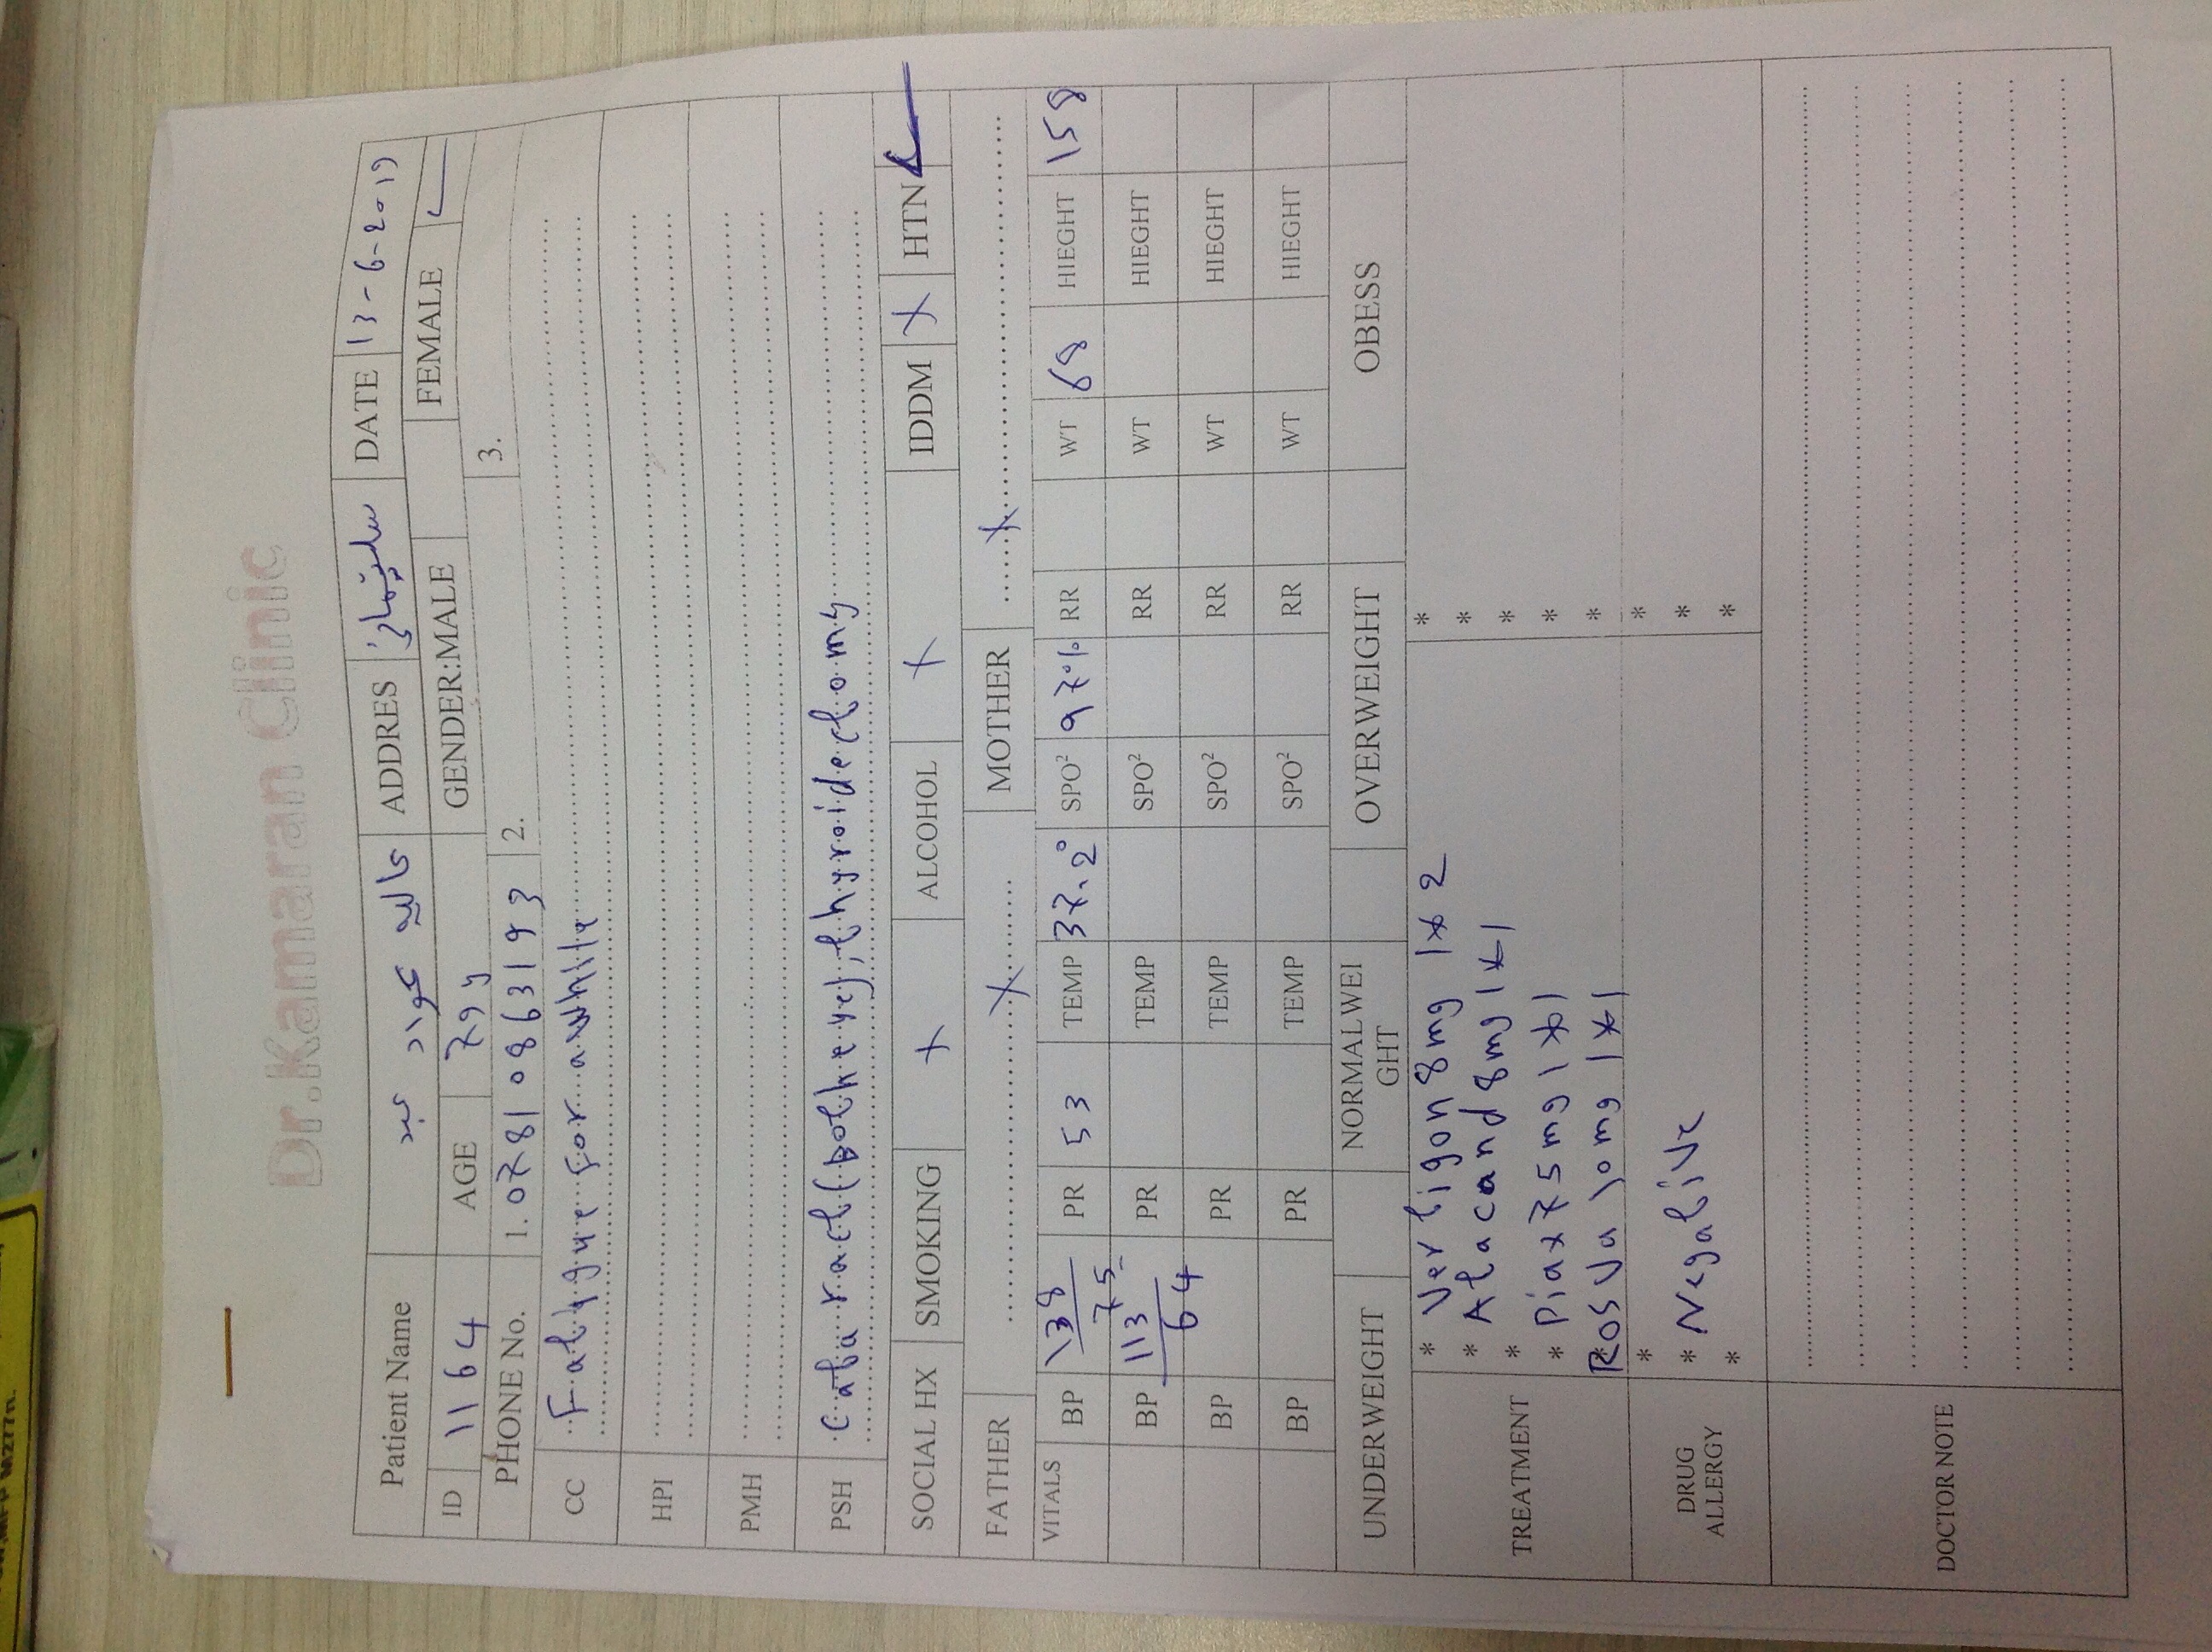 Dr.Kamaran Clinic
Patient Name عاليه عواد عبد ADDRES سلێمانی DATE 13-6-2019
ID 1164 AGE 79y GENDER:MALE FEMALE ✓
PHONE No. 1. 07810863193 2. 3.
CC Fatygue For a while
HPI
PMH
PSH Cataract (both eye), thyroidectomy
SOCIAL HX SMOKING x ALCOHOL x IDDM x HTN ✓
FATHER x MOTHER x
VITALS BP 138/75 PR 53 TEMP 37.2° SPO² 97% RR WT 68 HIEGHT 158
BP 113/64 PR TEMP SPO² RR WT HIEGHT
BP PR TEMP SPO² RR WT HIEGHT
BP PR TEMP SPO² RR WT HIEGHT
UNDERWEIGHT NORMALWEIGHT OVERWEIGHT OBESS
TREATMENT
* Vertigon 8mg 1x2 *
* Atacand 8mg 1x1 *
*
* Piax 75mg 1x1 *
* Rosuva 10mg 1x1 *
DRUG ALLERGY
* *
* Negative *
* *
DOCTOR NOTE